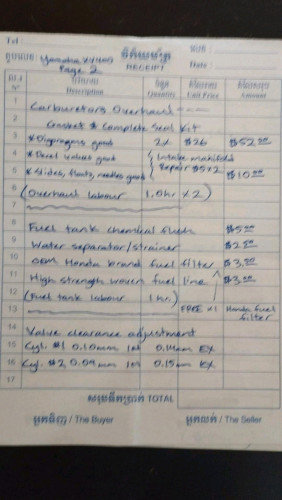 Tel :
វិក្កយបត្រ
RECEIPT
Date :
Yamaha XV400
Page 2
ល.រ
N°
Description
Quantity
Unit Price
Amount
1 Carburetors Overhaul ---
2 Gasket & Complete Seal Kit
3 * Diaphragms good 2x $26 $52.00
4 * Dowel values good Intake manifold
5 * Slides, floats, needles good Repair $5x2 $10.00
6 (Overhaul labour 1.0hr x2)
7
8 Fuel tank chemical flush $5.00
9 Water separator/strainer $2.50
10 OEM Honda brand fuel filter $3.50
11 High strength woven fuel line $3.00
12 (Fuel tank labour 1hr)
13 FREE x1 Honda fuel filter
14 Valve clearance adjustment
15 Cyl. #1 0.10mm IN 0.14mm EX
16 Cyl. #2 0.09mm IN 0.15mm EX
17
សរុបទឹកប្រាក់ TOTAL
អ្នកទិញ / The Buyer អ្នកលក់ / The Seller